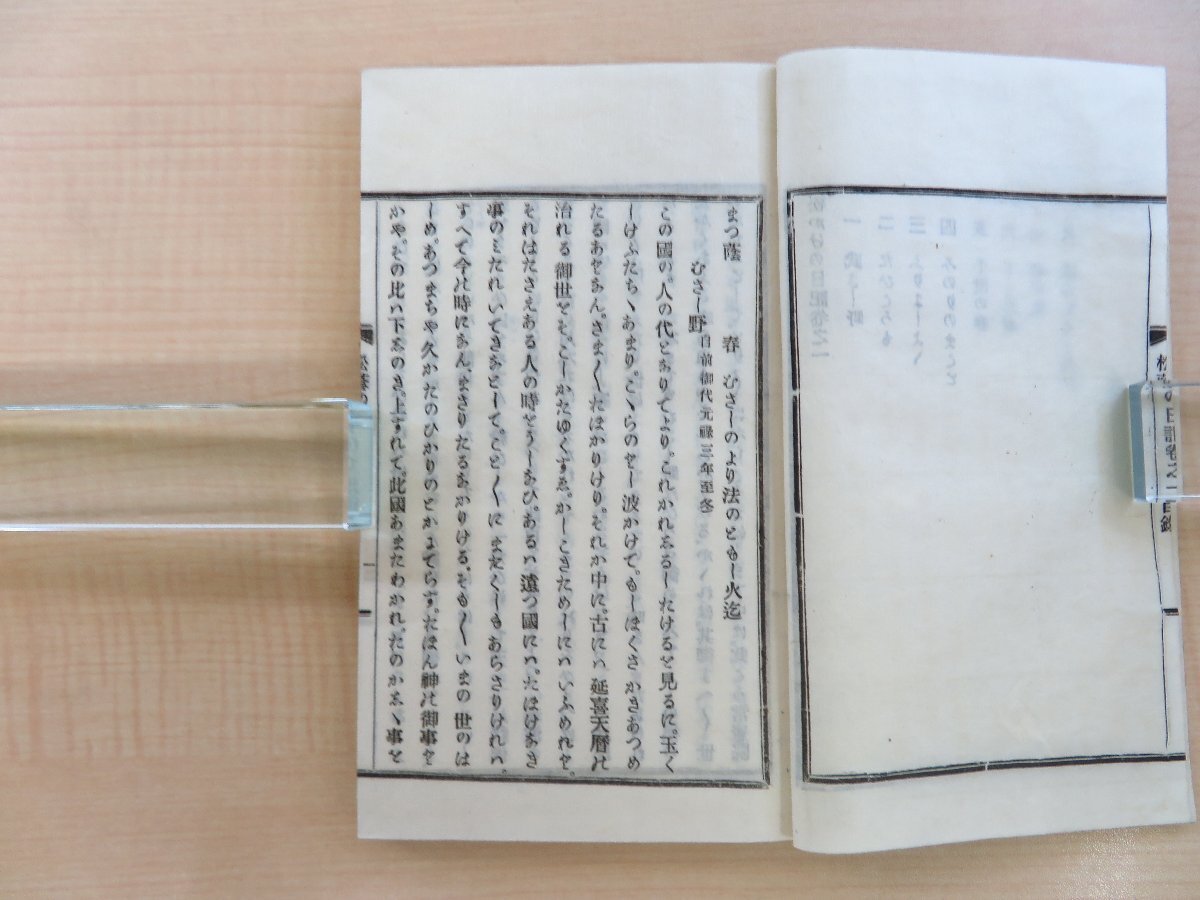 松蔭の日記巻之一目録
まつ蔭　　春　むさしのより法のともし火迄
むさし野　自前御代元禄三年至冬
この國の。人の代とおりてより。これかれゑるしたけるを見るに。玉く
しけふたちゝあまり。こゝらのとし波かけて。もしほくさかきあつめ
たるあとなん。さま〳〵たほかりけり。それか中に。古にハ延喜天暦の
治れる御世をそ。こしかたゆくすゑ。かしこきためしにハいふめれと。
それはたさえある人の時をうしなひ。あるハ遠つ國にハ。たほけなき
事のミたれいてきなとして。こと〳〵にまたくしもあらさりけれハ。
すへて今の時になん。まさりたるなかりける。そも〳〵いまの世のは
しめ。あつまちや久かたのひかりのとかにてらす。たほん神の御事を
かや。その比ハ下ゑのき。上すれて。此國あまたわかれ。たのかゑゝ事を
松蔭の
一